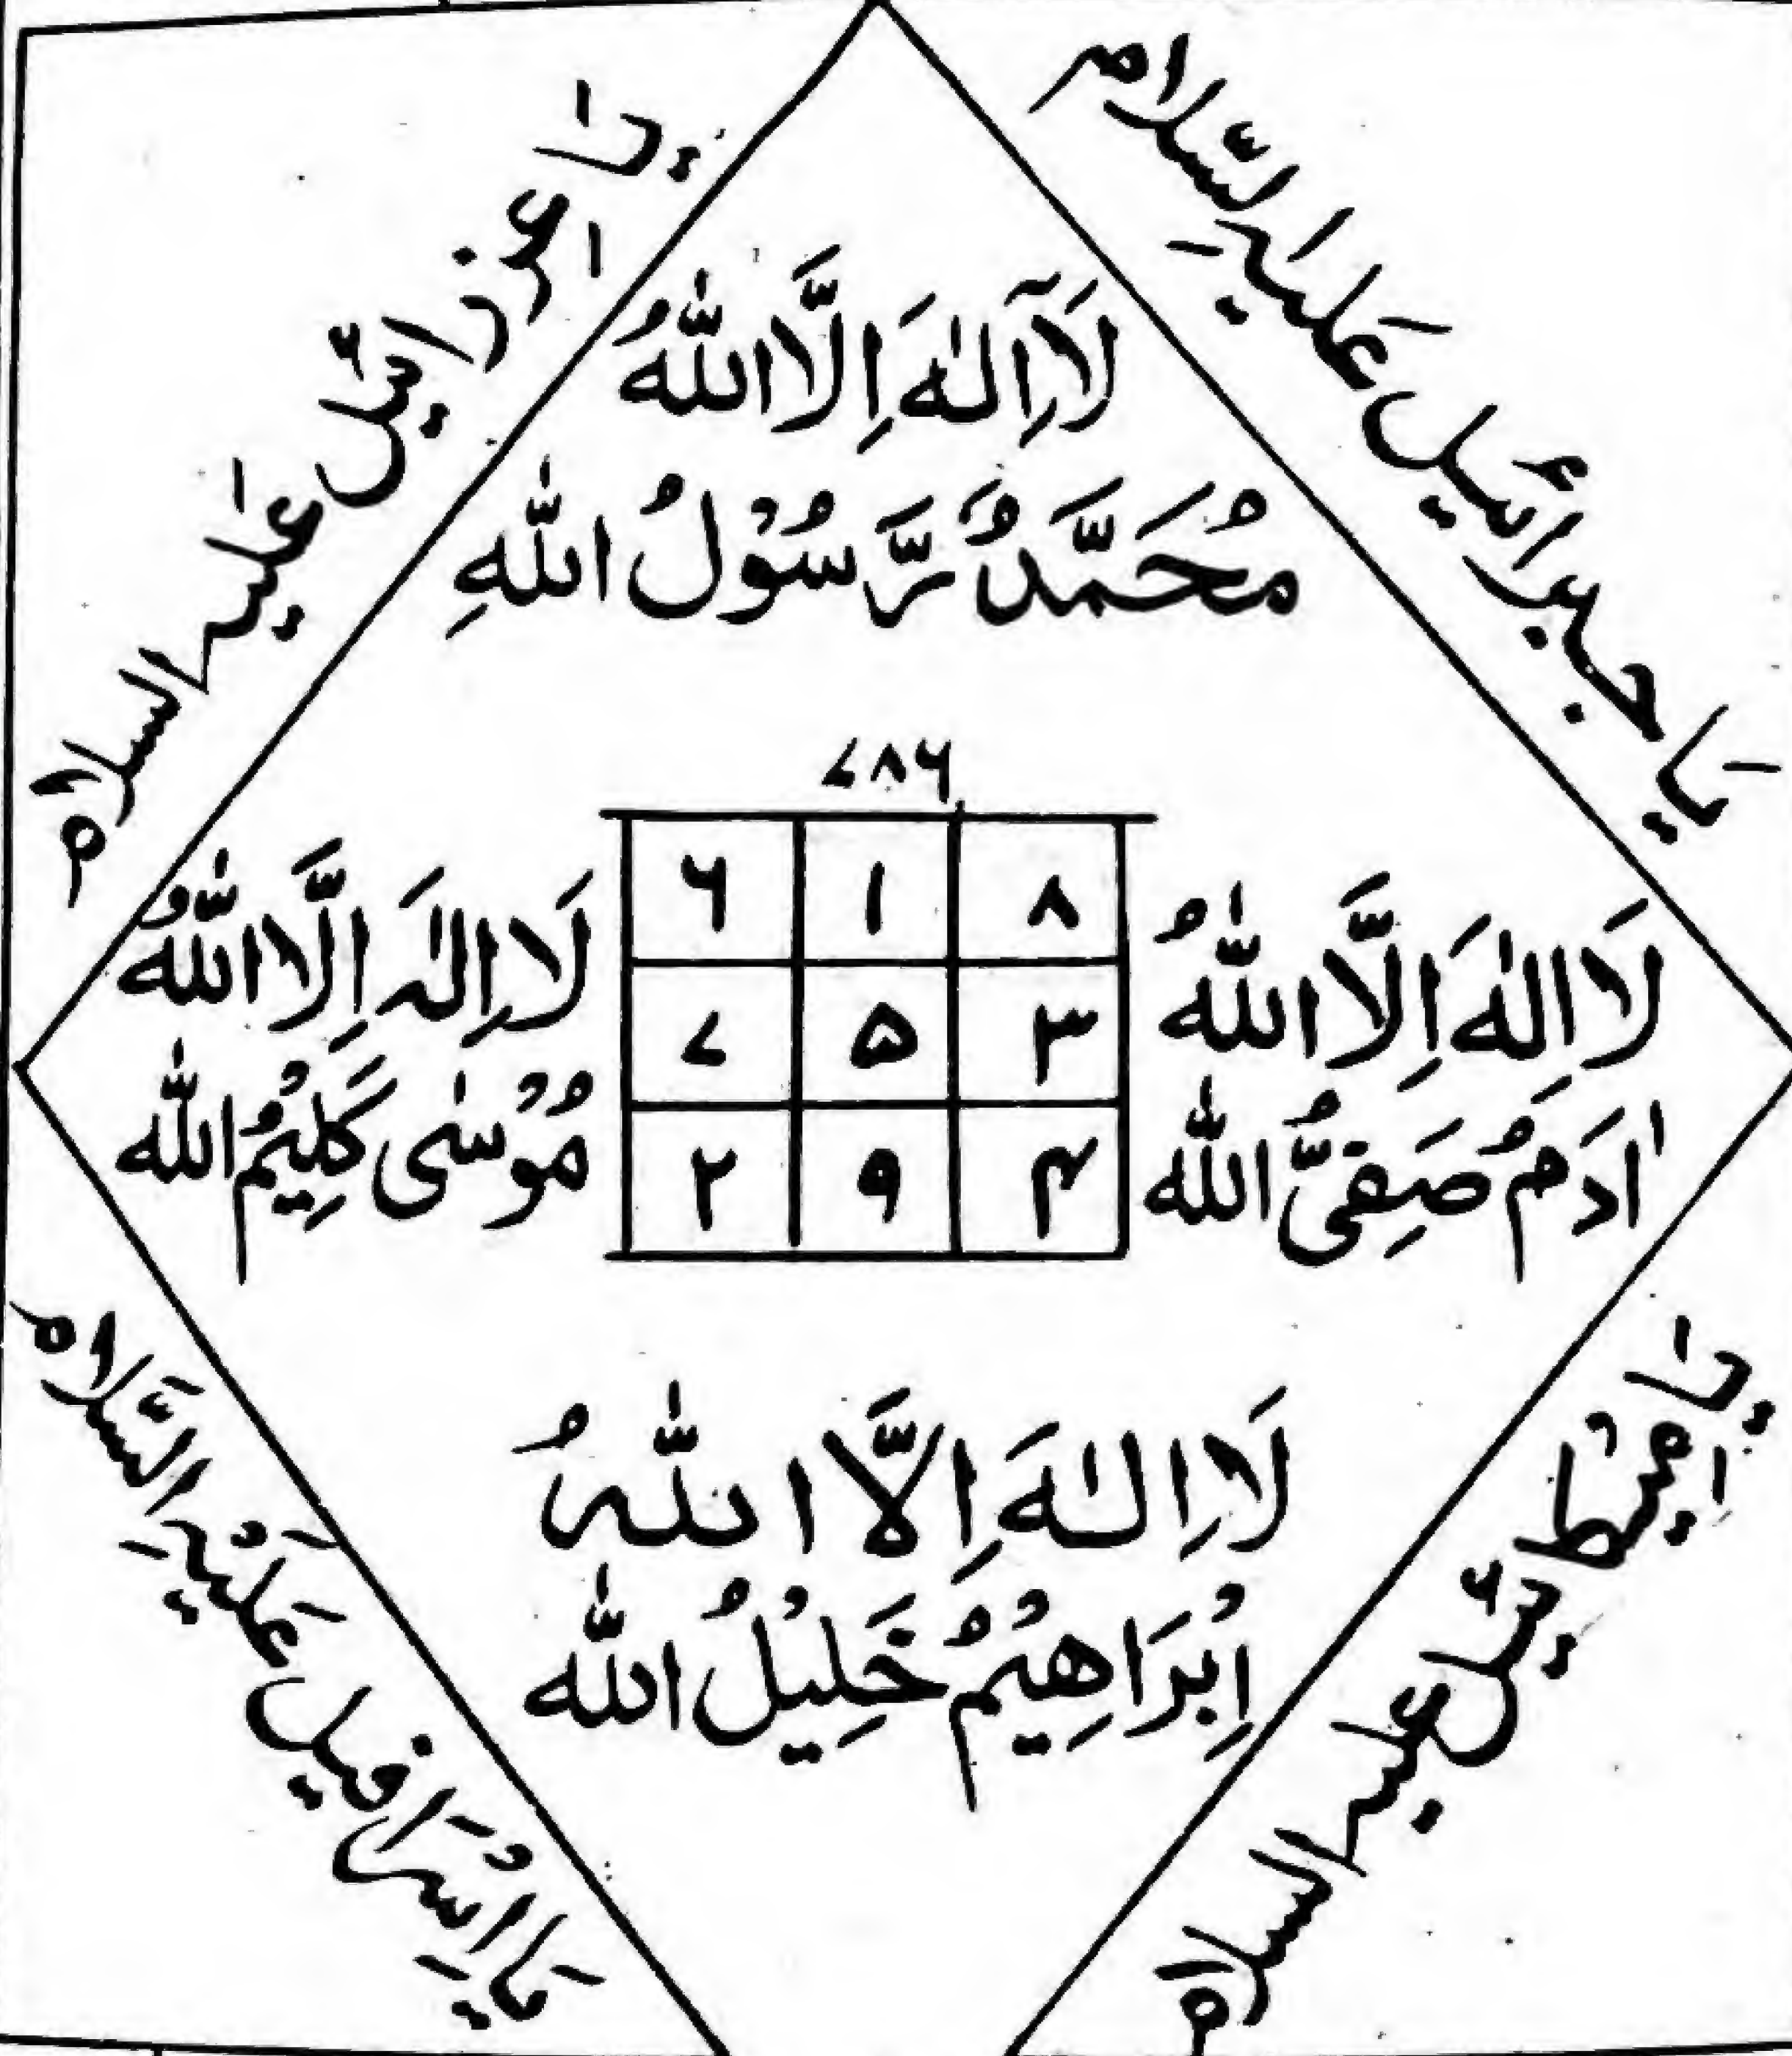 یَا جبرائیل عَلَیہِ السَّلَام
یا اعزرائیل علیہ السلام
لَآ اِلٰهَ اِلَّا اللّٰهُ
مُحَمَّدٌ رَّسُوْلُ اللّٰهِ
۷۸۶
۶ ۱ ۸
۷ ۵ ۳
۲ ۹ ۴
لَا اِلٰهَ اِلَّا اللّٰهُ
اٰدَمُ صَفِیُّ اللّٰه
لَا اِلٰهَ اِلَّا اللّٰهُ
مُوْسٰی کَلِیْمُ اللّٰه
لَا اِلٰهَ اِلَّا اللّٰهُ
اِبْرَاهِیْمُ خَلِیْلُ اللّٰه
یا علیہ السلام
یَا اِسْرَافیل عَلَیْہِ السَّلَام